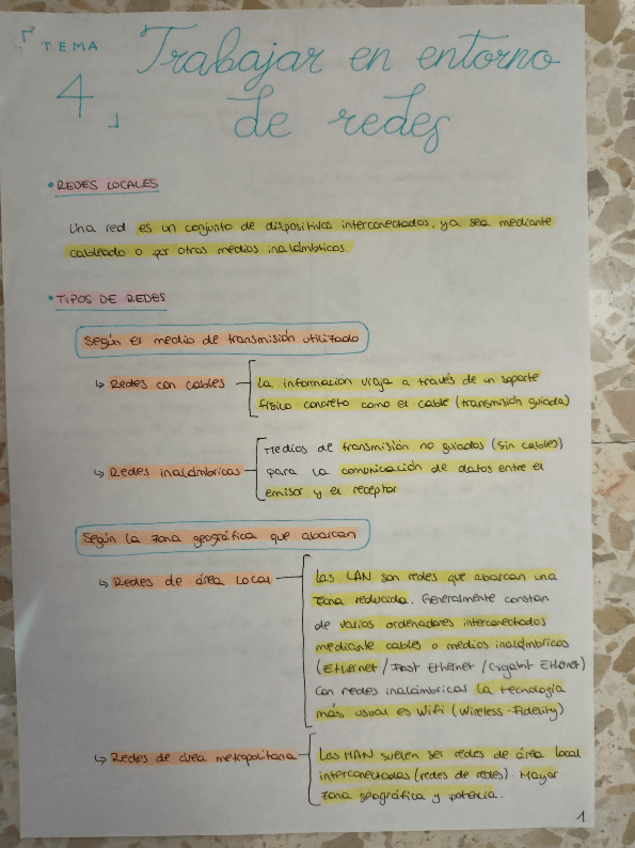 TEMA
4
Trabajar en entorno
de redes
• REDES LOCALES
Una red es un conjunto de dispositivos interconectados, ya sea mediante
cableado o por otros medios inalámbricos.
• TIPOS DE REDES
Según el medio de transmisión utilizado
↳ Redes con cables
La información viaja a través de un soporte
físico concreto como el cable (transmisión guiada)
↳ Redes inalámbricas
Medios de transmisión no guiados (sin cables)
para la comunicación de datos entre el
emisor y el receptor
Según la zona geográfica que abarcan
↳ Redes de área Local
Las LAN son redes que abarcan una
zona reducida. Generalmente constan
de varios ordenadores interconectados
mediante cables o medios inalámbricos
(Ethernet / Fast Ethernet / Gigabit Ethernet)
Con redes inalámbricas la tecnología
más usual es Wifi (Wireless-Fidelity)
↳ Redes de área metropolitana
Las MAN suelen ser redes de área local
interconectadas (redes de redes). Mayor
zona geográfica y potencia.
1